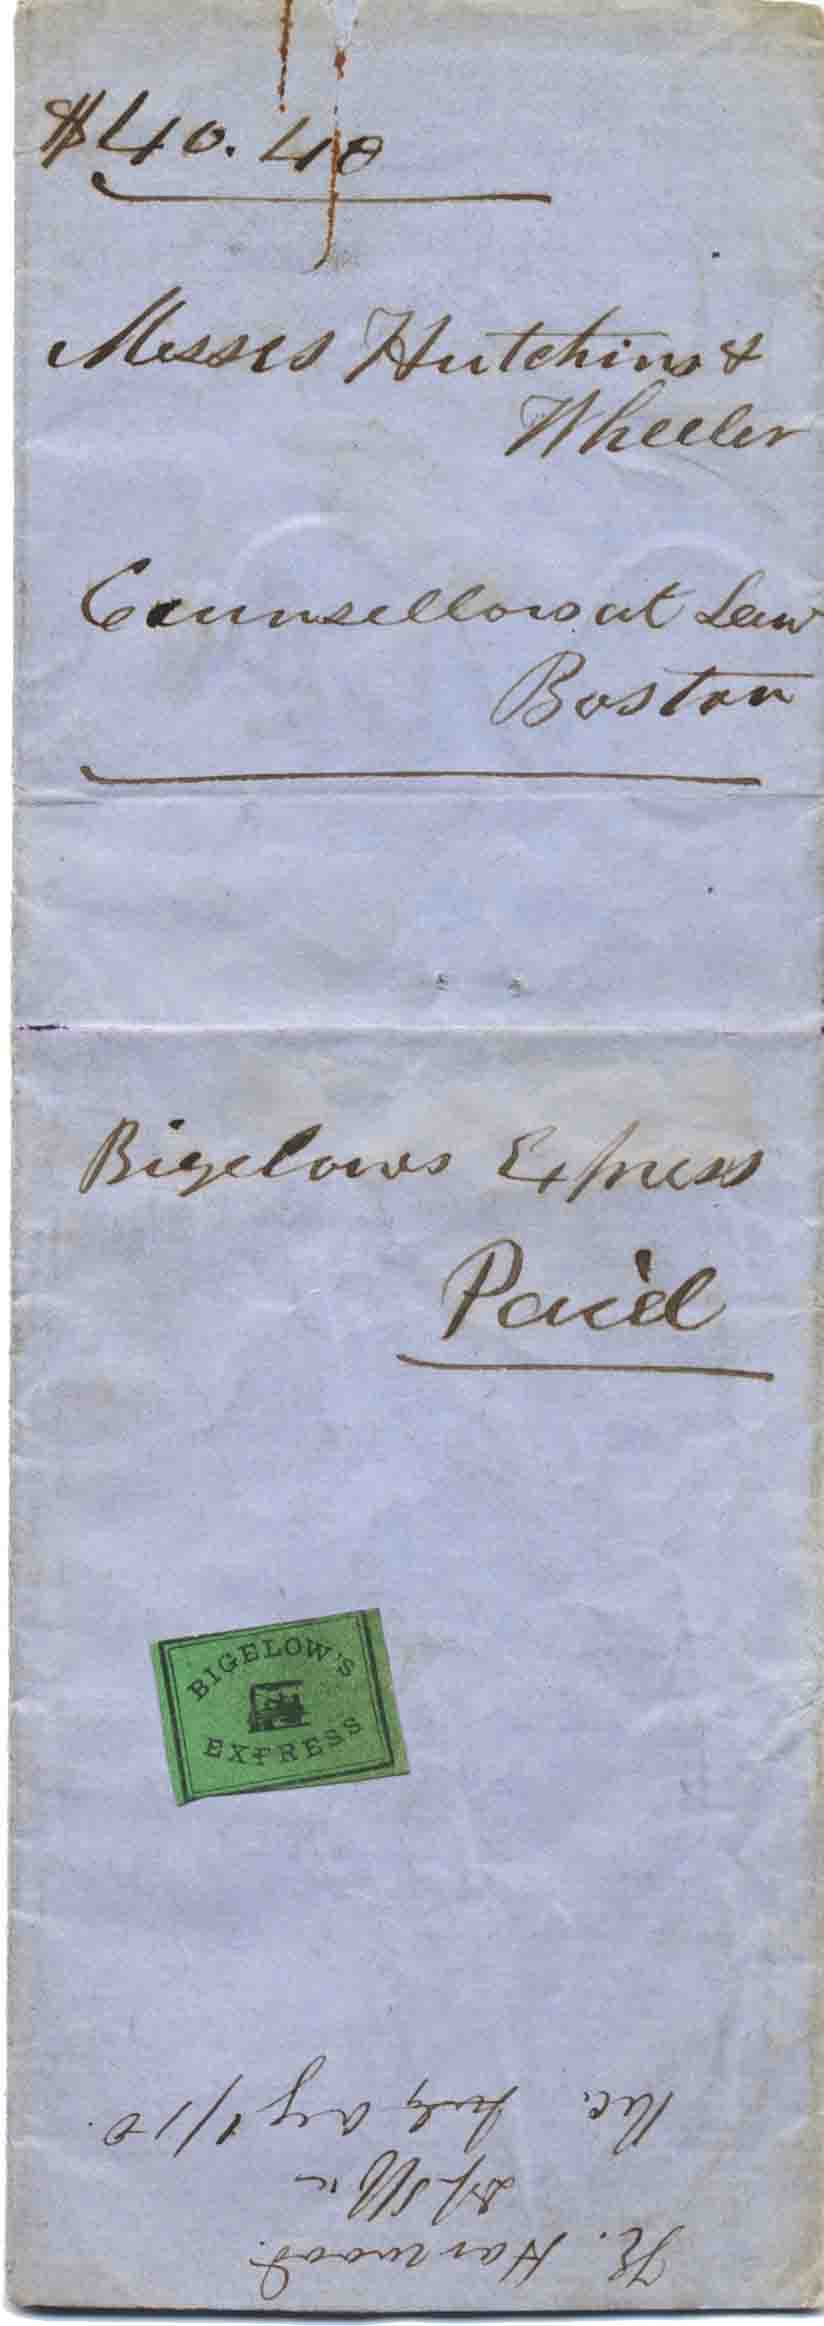 $40.40
Messrs Hutchins &
Wheeler
Counsellors at Law
Boston
Bigelows Express
Paid
BIGELOW'S
EXPRESS
Harwood.
Rec.